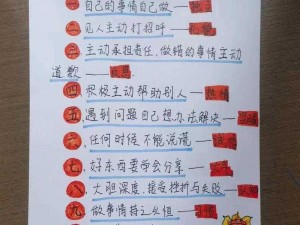 一 自己的事情自己做——独立
二 见人主动打招呼——礼貌
三 主动承担责任,做错的事情主动
道歉——
四 积极主动帮助别人——热情
五 遇到问题自己想办法解决——
六 任何时候不能说谎——诚信
七 好东西要学会分享——
八 大胆深度,接受挫折与失败——
九 做事情持之以恒——